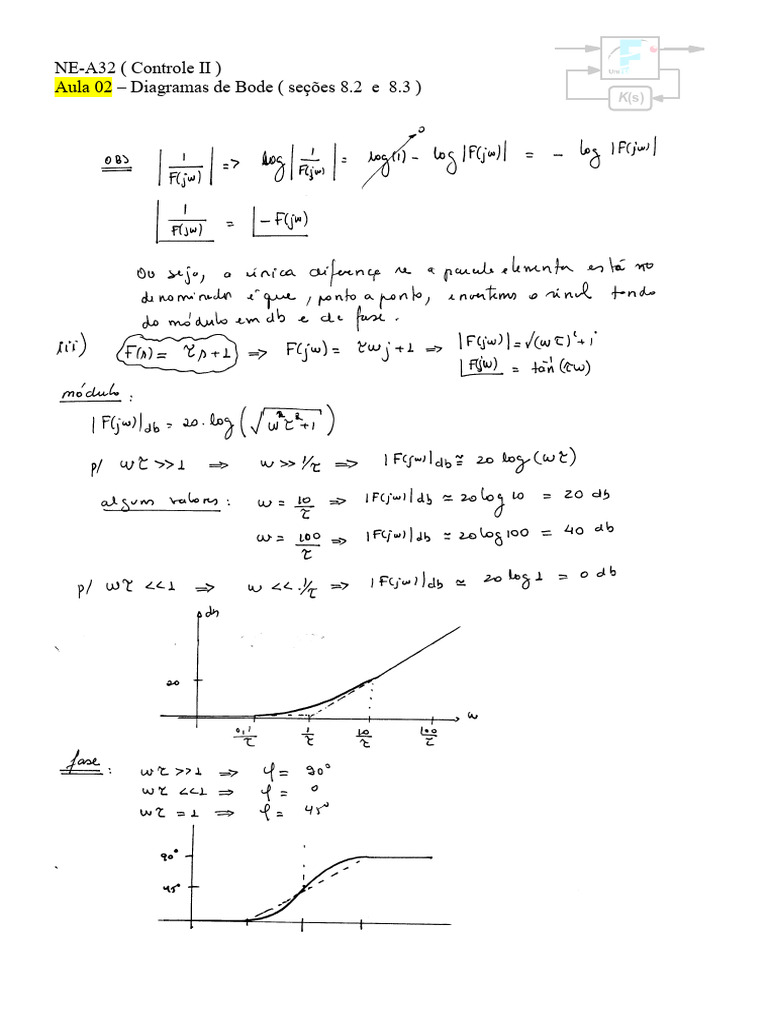 NE-A32 ( Controle II )
Aula 02 – Diagramas de Bode ( seções 8.2 e 8.3 )
K(s)
OBS |1/F(jω)| => log|1/F(jω)| = log(1) - log|F(jω)| = - log |F(jω)|
0
∠1/F(jω) = ∠-F(jω)
Ou seja, a única diferença se a parcela elementar está no
denominador é que, ponto a ponto, invertemos o sinal tando
do módulo em db e de fase.
iii) F(s) = τs+1 => F(jω) = τωj+1 => |F(jω)| = √(ωτ)²+1
∠F(jω) = tan⁻¹(τω)
módulo:
|F(jω)|db = 20.log(√ω²τ²+1)
p/ ωτ >>1 => ω >> 1/τ => |F(jω)|db ≃ 20 log(ωτ)
alguns valores: ω = 10/τ => |F(jω)|db ≃ 20log10 = 20 db
ω = 100/τ => |F(jω)|db ≃ 20log100 = 40 db
p/ ωτ <<1 => ω << 1/τ => |F(jω)|db ≃ 20 log1 = 0 db
db
20
ω
0,1/τ 1/τ 10/τ 100/τ
fase:
ωτ >>1 => φ = 90°
ωτ <<1 => φ = 0
ωτ = 1 => φ = 45°
90°
45°